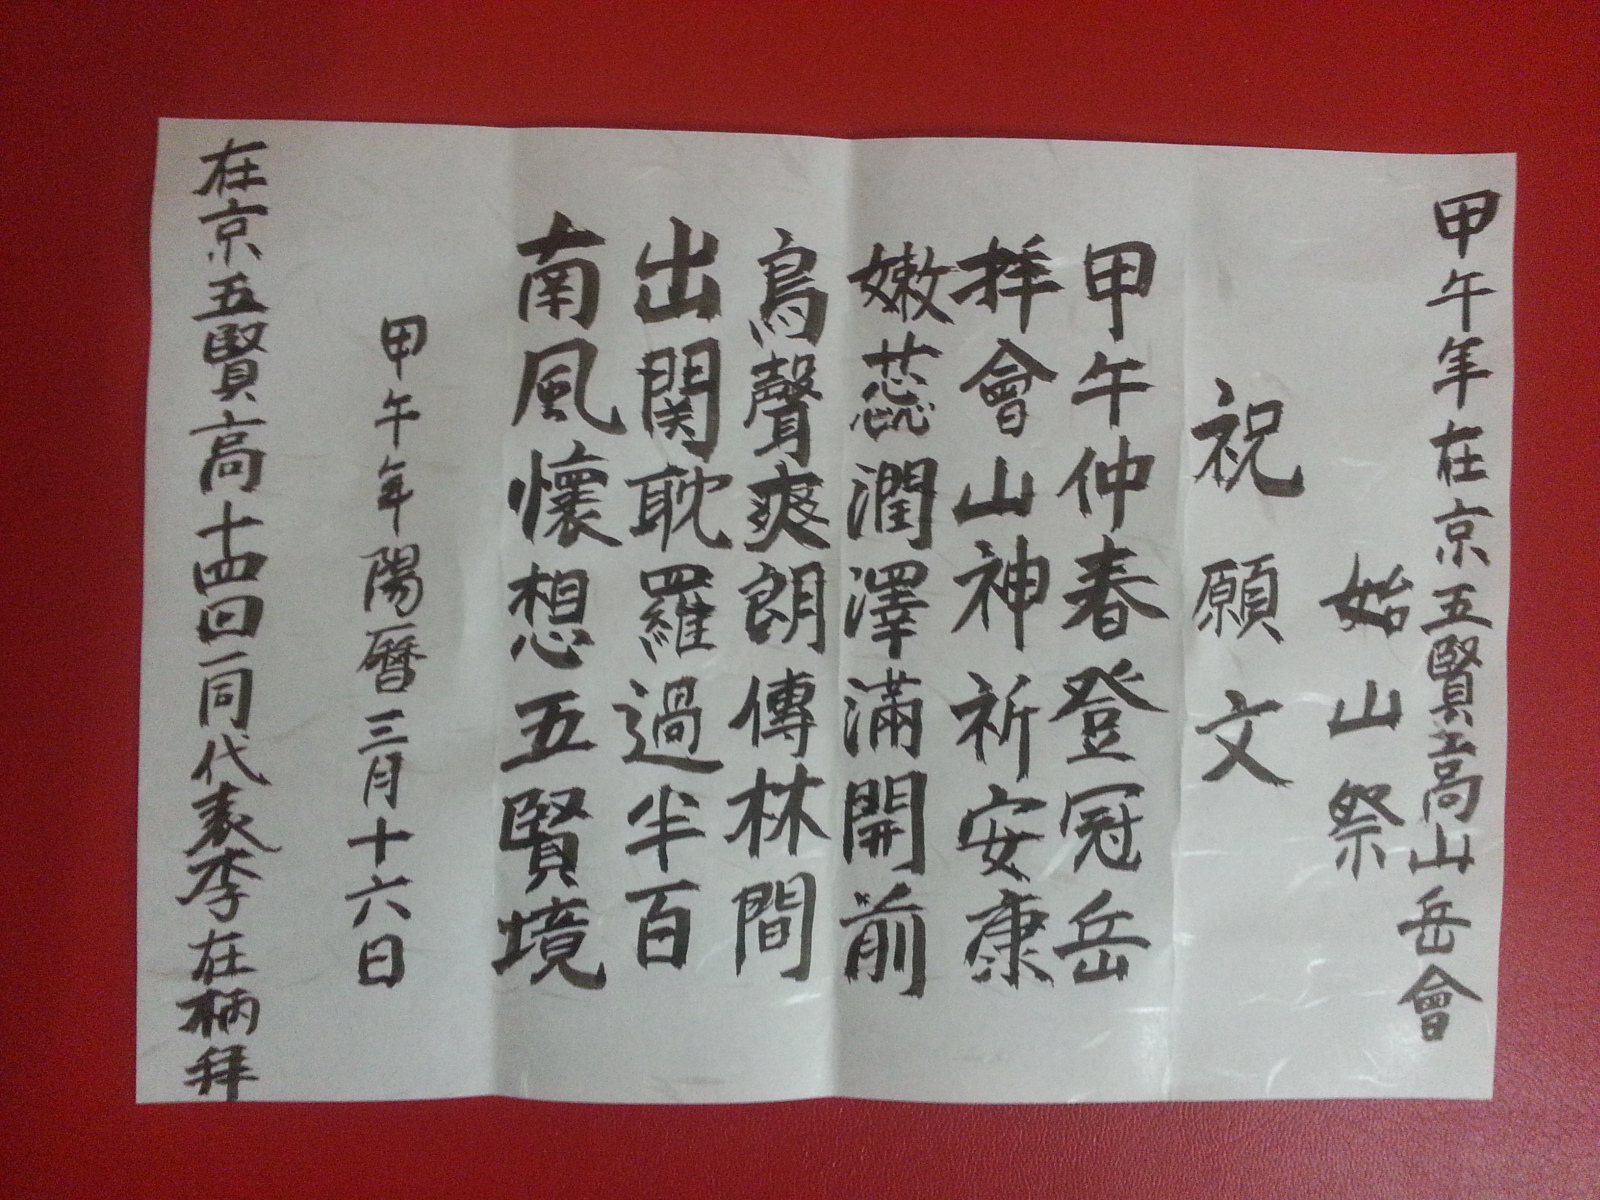 甲午年在京五賢高山岳會
始山祭
祝願文
甲午仲春登冠岳
拝會山神祈安康
嫩蕊潤澤滿開前
鳥聲爽朗傳林間
出関耽羅過半百
南風懷想五賢境
甲午年陽曆三月十六日
在京五賢高十四回一同代表李在柄拜